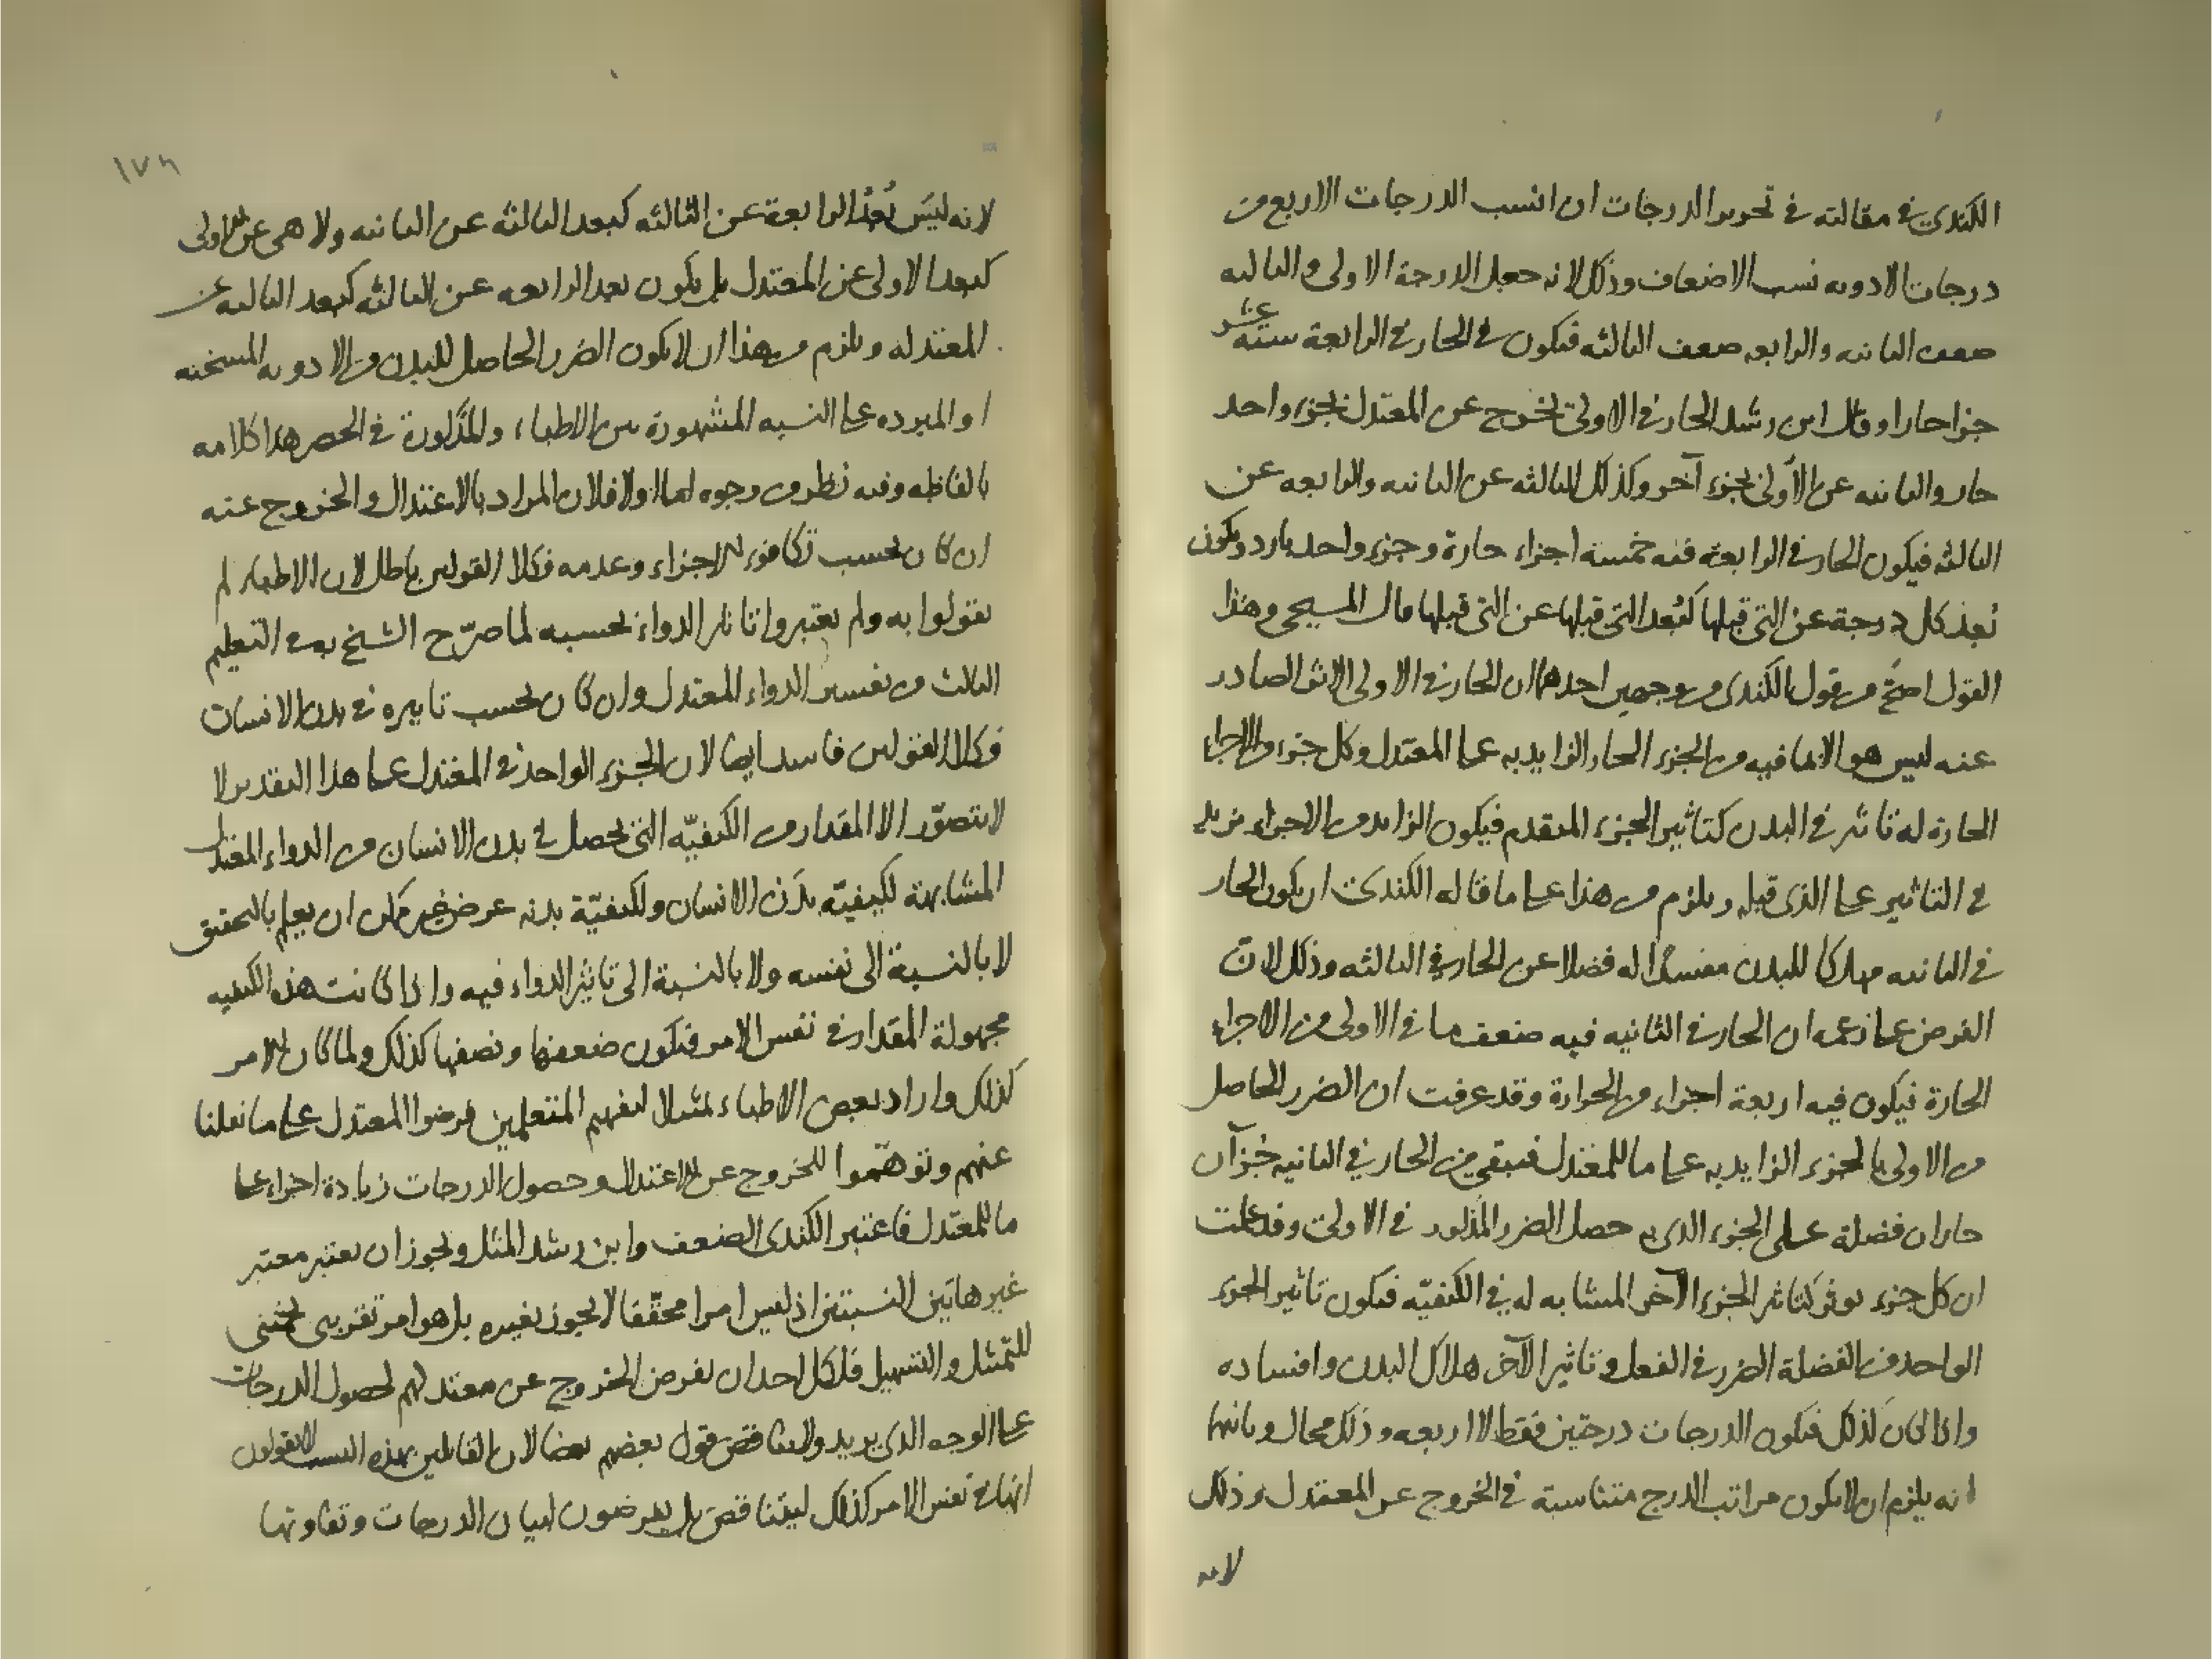 الكندي في مقالته في تحرير الدرجات ان انسب الدرجات الاربع من
درجات الادويه نسب الاضعاف وذلك لانه جعل الدرجة الاولى والثالثه
ضعف الثانيه والرابعه ضعف الثالثه فيكون في الحار في الرابعة ستة عشر
جزا حارا وقال ابن رشد الحار في الاولى يخرج عن المعتدل بجزء واحد
حار والثانيه عن الأولى بجزء آخر وكذلك الثالثه عن الثانيه والرابعه عن
الثالثه فيكون الحار في الرابعة فيه خمسة اجزاء حارة وجزء واحد بارد ويكون
بُعد كل درجة عن التي قبلها كبُعد التي قبلها عن التي قبلها قال المسيحي وهذا
القول اصح من قول الكندي من وجهين احدهما ان الحار في الاولى الاثر الصادر
عنه ليس هو الا بما فيه من الجزء الحار الزايد به على المعتدل وكل جزء من الاجزاء
الحارة له تاثير في البدن كتاثير الجزء المتقدم فيكون الزايد من الاجزاء يزيد
في التاثير على الذي قبله ويلزم من هذا على ما قاله الكندي ان يكون الحار
في الثانيه مهلكا للبدن مفسدًا له فضلا عن الحار في الثالثه وذلك لانّ
الفرض على زعمه ان الحار في الثانيه فيه ضعف ما في الاولى من الاجزاء
الحارة فيكون فيه اربعة اجزاء من الحرارة وقد عرفت ان الضرر الحاصل
من الاولى بالجزء الزايد به على ما للمعتدل فيبقى من الحار في الثانيه جزآن
حاران فضلة على الجزء الذي به حصل الضرر المذكور في الاولى وقد علمت
ان كل جزء يوثر كتاثير الجزء الآخر المشابه له في الكيفيّه فيكون تاثير الجزء
الواحد من الفضلة الضرر في الفعل وتاثير الآخر هلاك البدن وافساده
واذا كان كذلك فيكون الدرجات درجتين فقط لا اربعه وذلك محال وثانيها
انه يلزم ان لا يكون مراتب الدرج متناسبة في الخروج عن المعتدل وذلك
لانه
١٧٨
لانه ليسَ بُعدُ الرابعة عن الثالثه كبعد الثالثة عن الثانيه ولا هي عن الاولى
كبعد الاولى عن المعتدل بل يكون بعد الرابعه عن الثالثه كبعد الثالثه عن
المعتدله ويلزم من هذا ان لا يكون الضرر الحاصل للبدن من الادويه المسخنه
او المبرده على النسبه المشهورة بين الاطباء والمذكورة في الحصر هذا كلامه
بالفاظه وفيه نظر من وجوه اما اولا فلان المراد بالاعتدال والخروج عنه
ان كان بحسب تكافوء الاجزاء وعدمه فكلا القولين باطل لان الاطباء لم
يقولوا به ولم يعتبروا تاثير الدواء بحسبه لما صرّح الشيخ به في التعليم
الثالث من تفسير الدواء المعتدل وان كان بحسب تاثيره في بدن الانسان
فكلا القولين فاسد ايضا لان الجزء الواحد في المعتدل على هذا التقدير لا
لا يتصوّر الا المقدار من الكيفيّه التي يحصل في بدن الانسان من الدواء المعتدل
المشابهة لكيفيّه بدَن الانسان ولكيفيّة بدنه عرض غير ممكن ان يعلم بالتحقيق
لا بالنسبة الى نفسه ولا بالنسبة الى تاثير الدواء فيه واذا كانت هذه الكيفيه
مجهولة المقدار في نفس الامر فتكون ضعفها ونصفها كذلك ولما كان الامر
كذلك واراد بعض الاطباء مثالا لتفهيم المتعلمين فرضوا المعتدل على ما نقلنا
عنهم وتوهّموا للخروج عن الاعتدال وحصول الدرجات زيادة اجزاء على
ما للمعتدل فاعتبر الكندي الضعف وابن رشد المثل ويجوز ان يعتبر معتبر
غير هاتين النسبتين اذ ليس امرا محقّقا لا يجوز تغييره بل هو امر تقريبى تخمينى
للتمثيل والتسهيل فلكل احد ان يفرض الخروج عن معتدلهم لحصول الدرجات
على الوجه الذي يريد ولا يناقض قول بعضهم بعضا لان القائلين بهذه النسب لا يقولون
انها في نفس الامر كذلك ليتناقض بل يفرضون لبيان الدرجات وتفاوتها